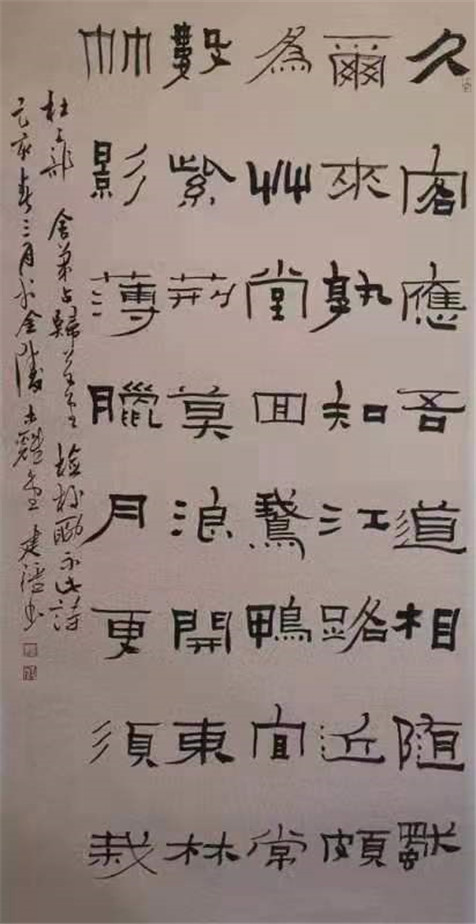 久客應吾道相随獨
爾來孰知江路近頻
為艸堂回鵝鴨宜常
數紫荊莫浪開東林
竹影薄臘月更須栽
杜工部 舍弟占歸草堂檢校聊示此詩
己亥春三月於金陵 建 書